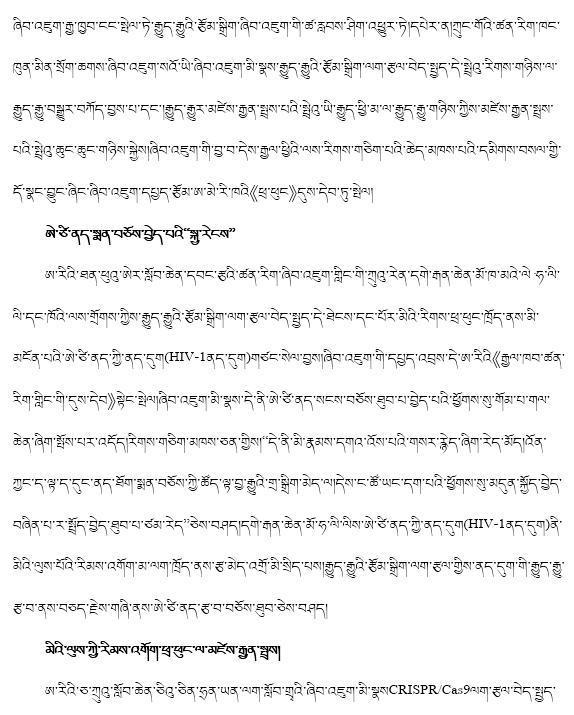 ཞིབ་འཇུག་རྒྱ་ཁྱབ་ངང་སྤེལ་ཏེ་རྒྱུད་རྒྱུའི་རྩོམ་སྒྲིག་ཞིབ་འཇུག་གི་ཚ་རླབས་ཤིག་འཕྱུར་ཏེ།དཔེར་ན།ཀྲུང་གོའི་ཚན་རིག་ཁང་
ཁུན་མིན་སྲོག་ཆགས་ཞིབ་འཇུག་སའོ་ཡི་ཞིབ་འཇུག་མི་སྣས་རྒྱུད་རྒྱུའི་རྩོམ་སྒྲིག་ལག་རྩལ་བེད་སྤྱད་དེ་སྤྲེའུ་རིགས་གཉིས་ལ་
རྒྱུད་རྒྱུ་བསྒྱུར་བཀོད་བྱས་པ་དང་།རྒྱུད་རྒྱུར་མཛེས་རྒྱན་སྤྲས་པའི་སྤྲེའུ་ཡི་རྒྱུད་ཕྱི་མ་ལ་རྒྱུད་རྒྱུ་གཉིས་ཀྱིས་མཛེས་རྒྱན་སྤྲས་
པའི་སྤྲེའུ་ཆུང་ཆུང་གཉིས་སྐྱེས།ཞིབ་འཇུག་གི་བྱ་བ་དེས་རྒྱལ་ཕྱིའི་ལས་རིགས་གཅིག་པའི་ཆེད་མཁས་པའི་དམིགས་བསལ་གྱི་
དོ་སྣང་བྱུང་ཞིང་ཞིབ་འཇུག་དཔྱད་རྩོམ་ཨ་མེ་རི་ཁའི《ཕྲ་ཕུང》དུས་དེབ་ཏུ་སྤེལ།
ཨེ་ཙི་ནད་སྨན་བཅོས་བྱེད་པའི“སྐྱ་རེངས”
ཨ་རིའི་ཐན་ཕུའུ་ཨེར་སློབ་ཆེན་དབང་རྩའི་ཚན་རིག་ཞིབ་འཇུག་གླིང་གི་ཀྲུའུ་རེན་དགེ་རྒན་ཆེན་མོ་ཁ་མའེ་ལེ་ཧ་ལི་
ལི་དང་ཁོའི་ལས་གྲོགས་ཀྱིས་རྒྱུད་རྒྱུའི་རྩོམ་སྒྲིག་ལག་རྩལ་བེད་སྤྱད་དེ་ཐེངས་དང་པོར་མིའི་རིགས་ཕྲ་ཕུང་ཁྲོད་ནས་མི་
མངོན་པའི་ཨེ་ཙི་ནད་ཀྱི་ནད་དུག(HIV-1ནད་དུག)གཙང་སེལ་བྱས།ཞིབ་འཇུག་གི་དཔྱད་འབྲས་དེ་ཨ་རིའི《རྒྱལ་ཁབ་ཚན་
རིག་གླིང་གི་དུས་དེབ》སྟེང་སྤེལ།ཞིབ་འཇུག་མི་སྣས་དེ་ནི་ཨེ་ཙི་ནད་སངས་བཅོས་ཐུབ་པ་བྱེད་པའི་ཕྱོགས་སུ་གོམ་པ་གལ་
ཆེན་ཞིག་སྤོས་པར་འདོད།རིགས་གཅིག་མཁས་ཅན་གྱིས།“དེ་ནི་མི་རྣམས་དགའ་འོས་པའི་གསར་རྙེད་ཞིག་རེད་མོད།འོན་
ཀྱང་ད་ལྟ་ད་དུང་ནད་ཐོག་སྨན་བཅོས་ཀྱི་ཚོད་ལྟ་བྱ་རྒྱུའི་གྲ་སྒྲིག་མེད་ལ།དེས་ང་ཚོ་ཡང་དག་པའི་ཕྱོགས་སུ་མདུན་སྐྱོད་བྱེད་
བཞིན་པ་ར་སྤྲོད་བྱེད་ཐུབ་པ་ཙམ་རེད”ཅེས་བཤད།དགེ་རྒན་ཆེན་མོ་ཧ་ལི་ལིས་ཨེ་ཙི་ནད་ཀྱི་ནད་དུག(HIV-1ནད་དུག)ནི་
མིའི་ལུས་པོའི་རིམས་འགོག་མ་ལག་ཁྲོད་ནས་རྩ་མེད་འགྲོ་མི་སྲིད་པས།རྒྱུད་རྒྱུའི་རྩོམ་སྒྲིག་ལག་རྩལ་གྱིས་ནད་དུག་གི་རྒྱུད་རྒྱུ་
རྩ་བ་ནས་བཅད་རྗེས་གཞི་ནས་ཨེ་ཙི་ནད་རྩ་བ་བཅོས་ཐུབ་ཅེས་བཤད།
མིའི་ལུས་ཀྱི་རིམས་འགོག་ཕྲ་ཕུང་ལ་མཛེས་རྒྱན་སྤྲས།
ཨ་རིའི་ཅ་ཀྲུའུ་སློབ་ཆེན་ཅིའུ་ཅིན་ཧྲན་ཡན་ལག་སློབ་གྲྭའི་ཞིབ་འཇུག་མི་སྣསCRISPR/Cas9ལག་རྩལ་བེད་སྤྱད་